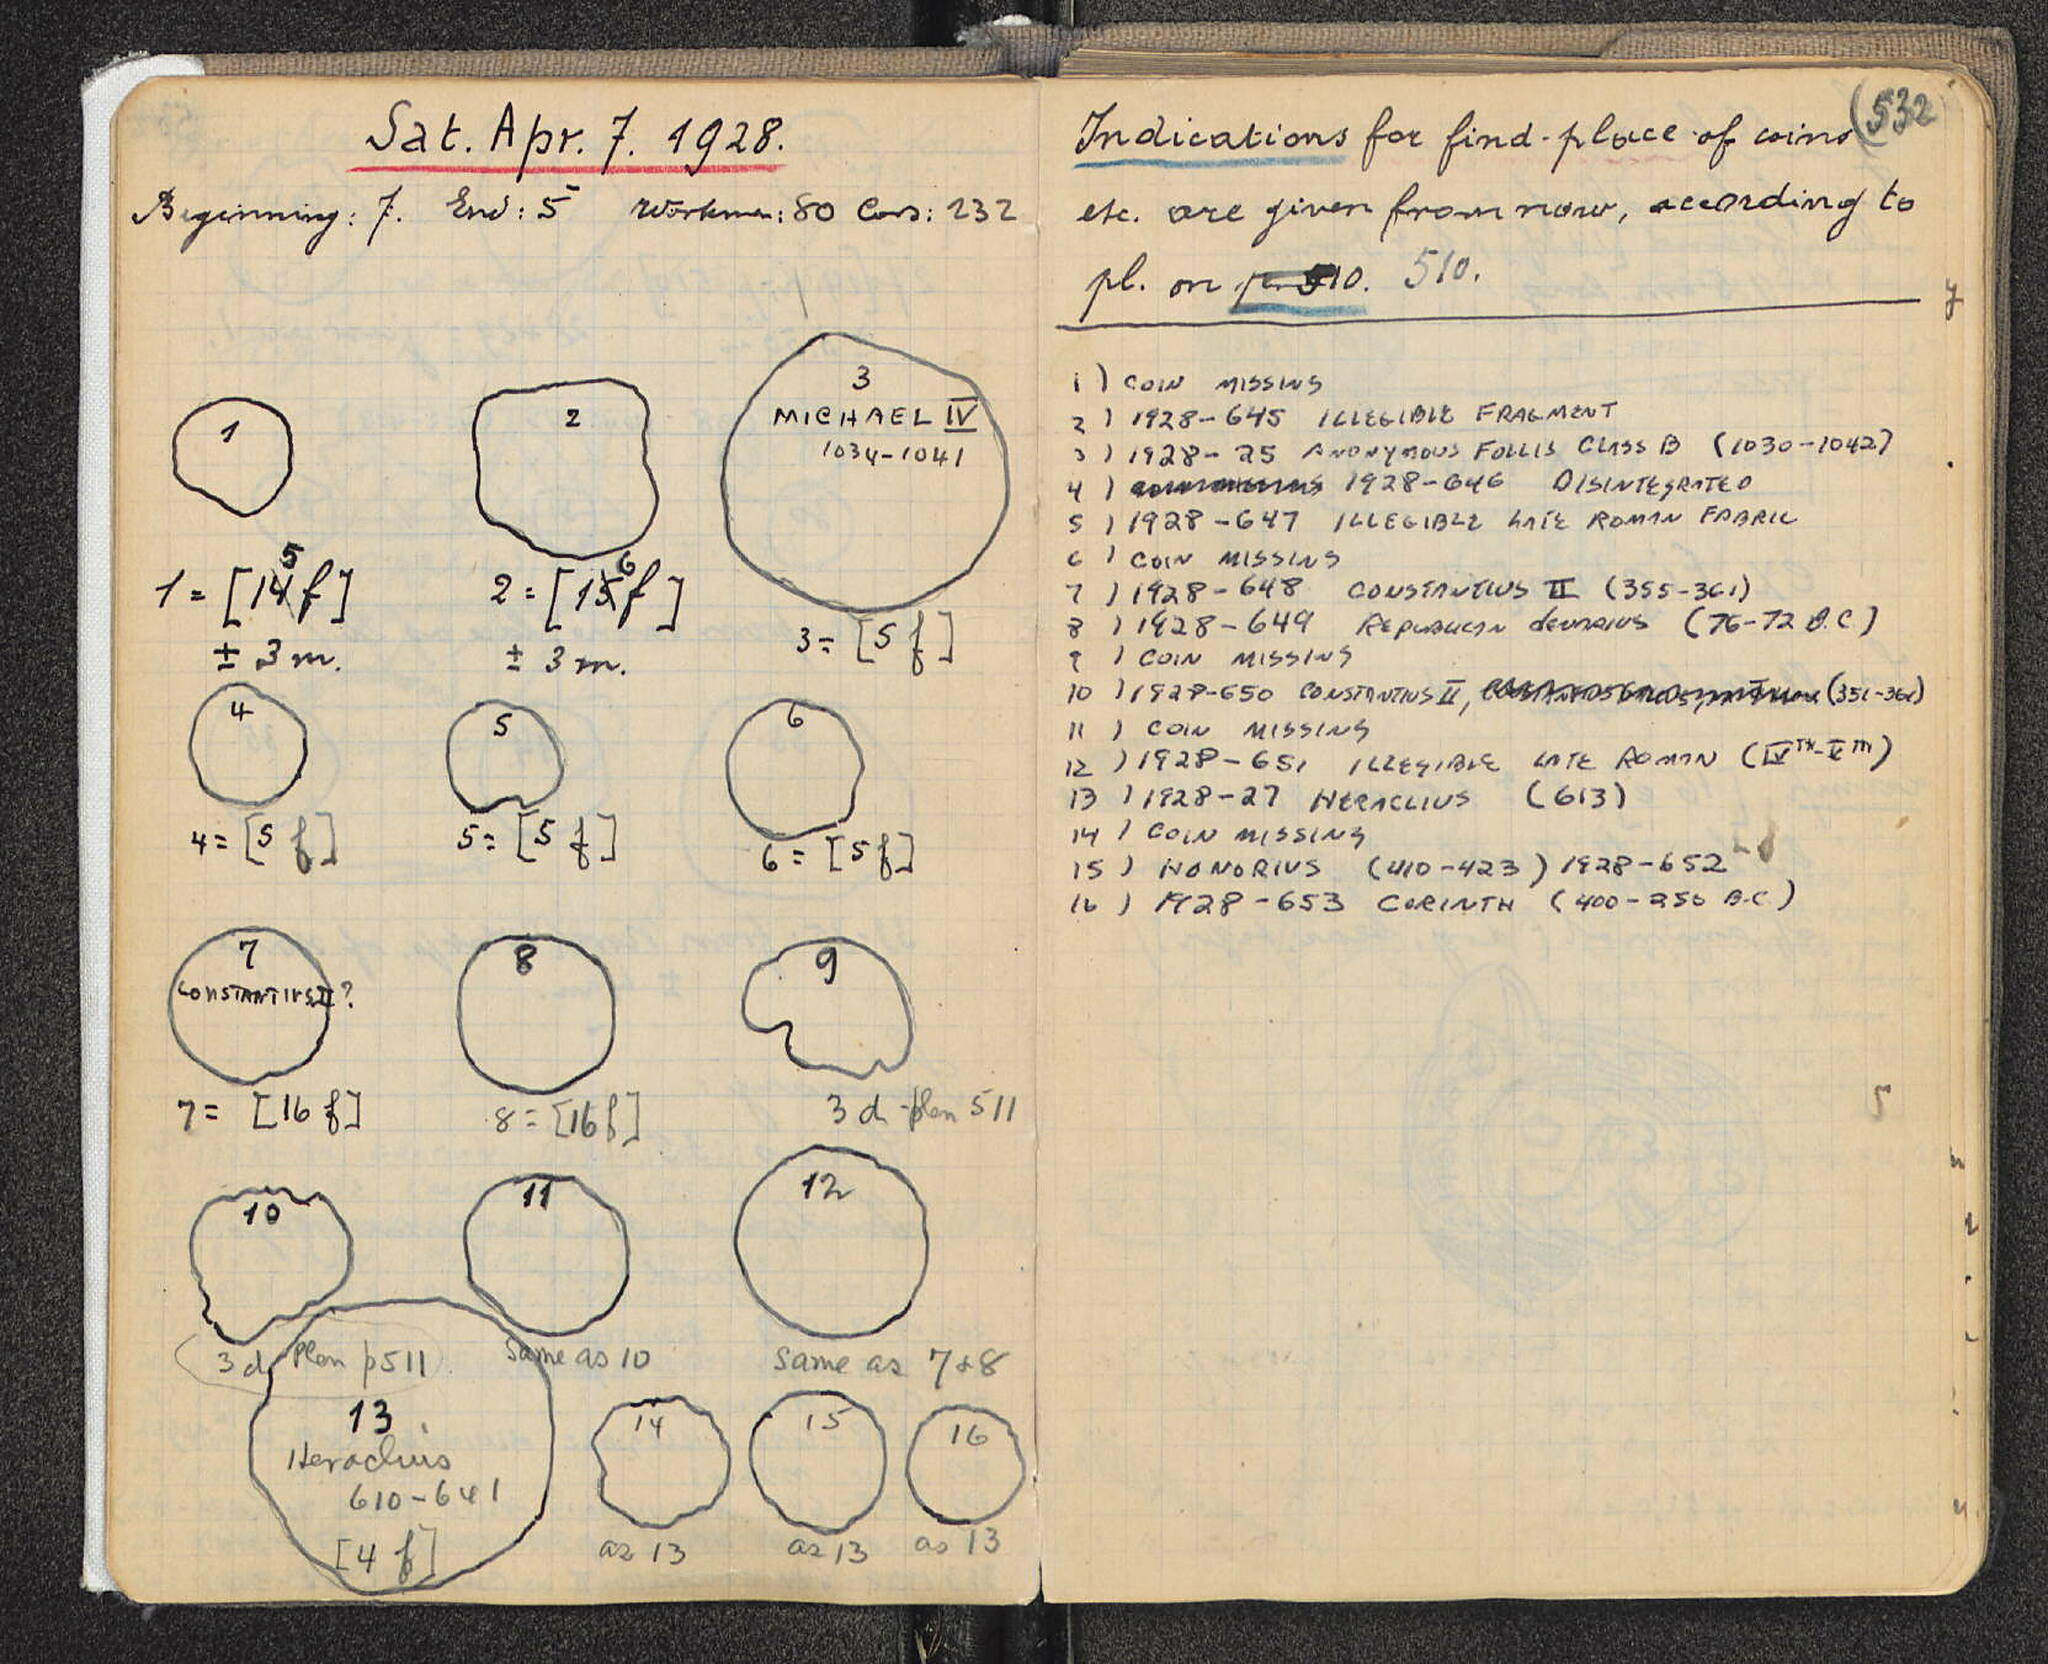 Sat. Apr. 7. 1928.
Beginning: 7. End: 5 Workmen: 80 Cars: 232
1
2
3
MICHAEL IV
1034-1041
1 = [15 f]
± 3 m.
2 = [16 f]
± 3 m.
3 = [5 f]
4
5
6
4 = [5 f]
5 = [5 f]
6 = [5 f]
7
CONSTANTIUS II?
8
9
7 = [16 f]
8 = [16 f]
3 d plan 511
10
11
12
3 d Plan p511.
Same as 10
Same as 7+8
13
Heraclius
610-641
[4 f]
14
15
16
as 13
as 13
as 13
(532
Indications for find-place of coins
etc. are given from now, according to
pl. on p. 510. 510.
1) COIN MISSING
2) 1928-645 ILLEGIBLE FRAGMENT
3) 1928-25 ANONYMOUS FOLLIS CLASS B (1030-1042)
4) 1928-646 DISINTEGRATED
5) 1928-647 ILLEGIBLE LATE ROMAN FABRIC
6) COIN MISSING
7) 1928-648 CONSTANTIUS II (355-361)
8) 1928-649 REPUBLICAN DENARIUS (76-72 B.C.)
9) COIN MISSING
10) 1928-650 CONSTANTIUS II, (351-361)
11) COIN MISSING
12) 1928-651 ILLEGIBLE LATE ROMAN (IVTH-VTH)
13) 1928-27 HERACLIUS (613)
14) COIN MISSING
15) HONORIUS (410-423) 1928-652
16) 1928-653 CORINTH (400-250 B.C.)
5